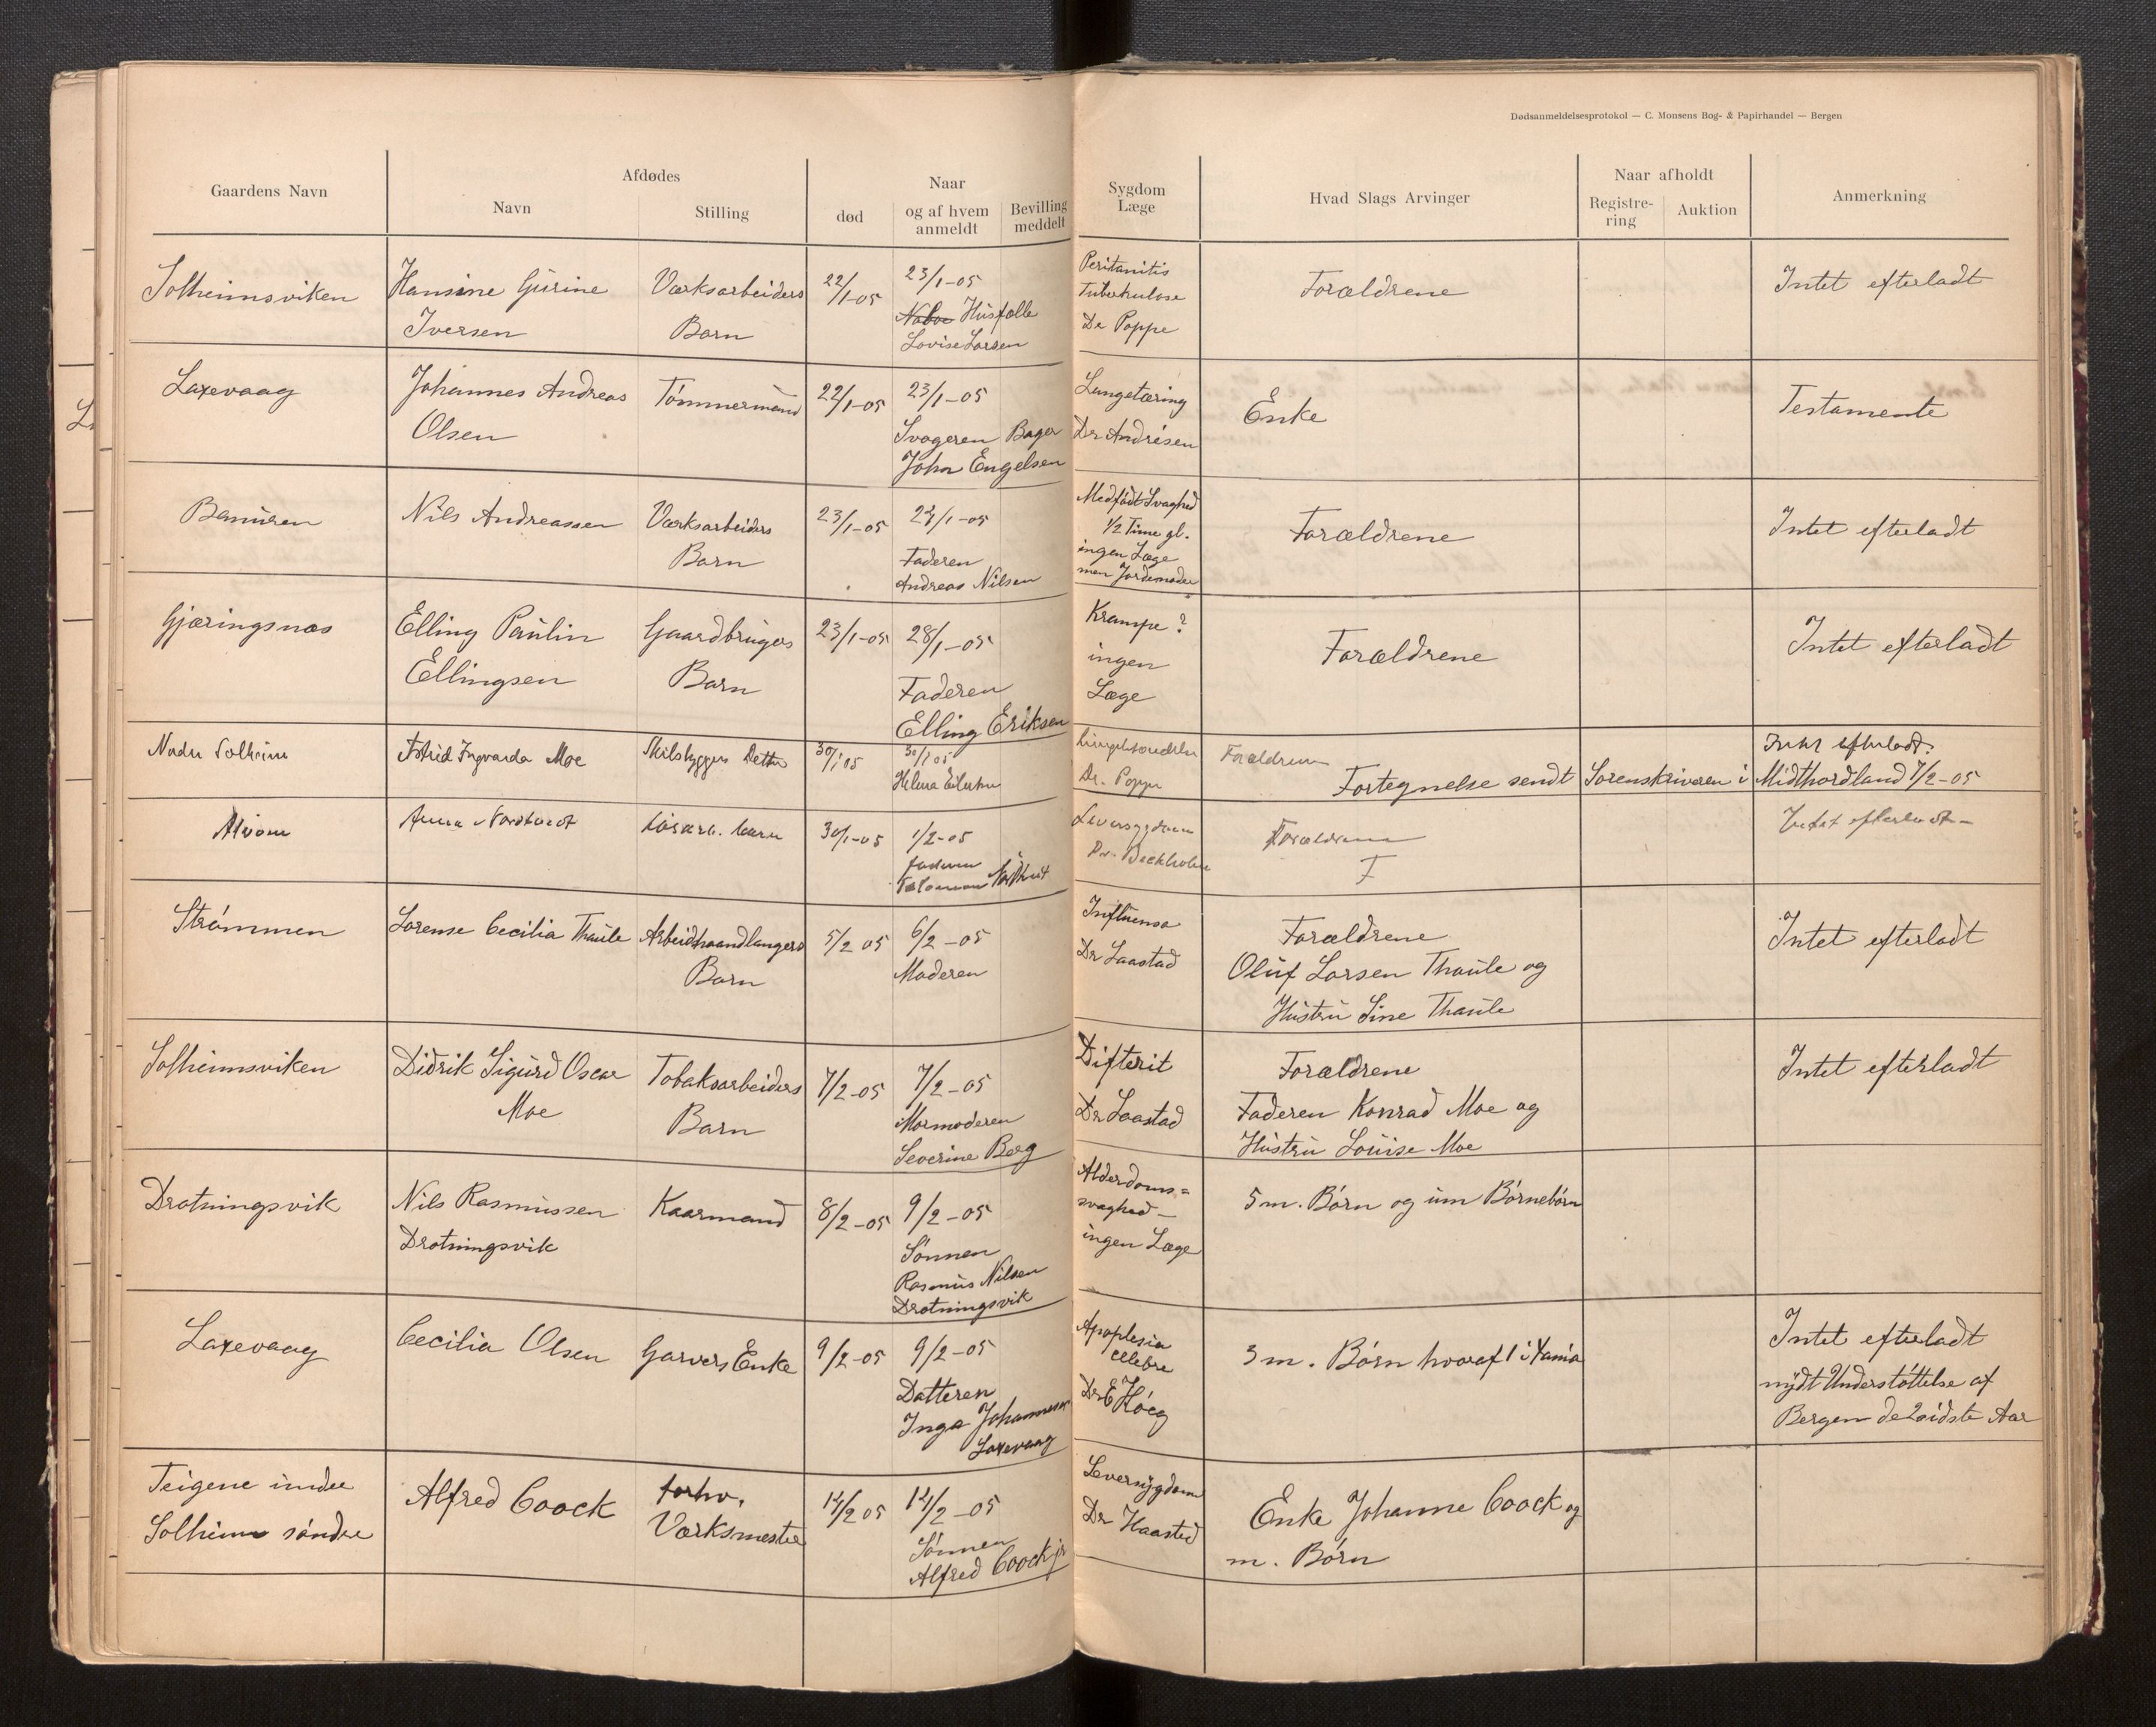 Dødsanmeldelsesprotokol — C. Monsens Bog- & Papirhandel — Bergen
Gaardens Navn
Afdødes
Navn
Stilling
Naar
død
og af hvem anmeldt
Bevilling meddelt
Sygdom
Læge
Hvad Slags Arvinger
Naar afholdt
Registre-
ring
Auktion
Anmerkning
Solheimsviken
Hansine Gurine
Iversen
Værksarbeiders
Barn
22/1-05
23/1-05
Naboe Husfælle
Lovise Larsen
Peritanitis
Tuberkulose
Dr Poppe
Forældrene
Intet efterladt
Laxevaag
Johannes Andreas
Olsen
Tømmermand
22/1-05
23/1-05
Svogeren Bager
John Engelsen
Lungetæring
Dr Andrésen
Enke
Testamente
Nils Andreassen
Værksarbeiders
Barn
23/1-05
24/1-05
Faderen
Andreas Nilsen
Medfødt Svaghed
1/2 Time gl.
ingen Læge
men Jordemoder
Forældrene
Intet efterladt
Gjæringsnæs
Elling Paulin
Ellingsen
Gaardbrugers
Barn
23/1-05
28/1-05
Faderen
Elling Eriksen
Krampe ?
ingen
Læge
Forældrene
Intet efterladt
Nedre Solheim
Astrid Ingvarda Moe
Datter
30/1 05
30/1 05
Helena
Dr. Poppe
Forældrene
Intet efterladt.
Fortegnelse sendt Sorenskriveren i Midthordland 7/2-05
Alvøen
Anna
30/1-05
1/2-05
Faderen
Leversygdom
Dr.
Forældrene
F
Intet efterladt
Strømmen
Lorense Cecilia Thaule
Arbeidhaandlangers
Barn
5/2 05
6/2-05
Moderen
Influensa
Dr Laastad
Forældrene
Oluf Larsen Thaule og
Hustru Sine Thaule
Intet efterladt
Solheimsviken
Didrik Sigurd Oscar
Moe
Tobaksarbeiders
Barn
7/2-05
7/2-05
Mormoderen
Severine Berg
Difterit
Dr Laastad
Forældrene
Faderen Konrad Moe og
Hustru Louise Moe
Intet efterladt
Drotningsvik
Nils Rasmussen
Drotningsvik
Kaarmand
8/2-05
9/2-05
Sønnen
Rasmus Nilsen
Drotningsvik
Alderdoms=
svaghed —
ingen Læge
5 m. Børn og um Børnebørn
Laxevaag
Cecilia Olsen
Garvers Enke
9/2-05
9/2-05
Datteren
Inga Johannessen
Laxevaag
Apoplesia
Dr E Høeg
3 m. Børn hvoraf 1 i
Intet efterladt
nydt Understøttelse af
Bergen de 2 sidste Aar
Teigene under
Solheim søndre
Alfred Coock
forhv.
Værksmester
14/2 05
14/2-05
Sønnen
Alfred Coock jr
Leversygdom
Dr Haasted
Enke Johanne Coock og
m. Børn